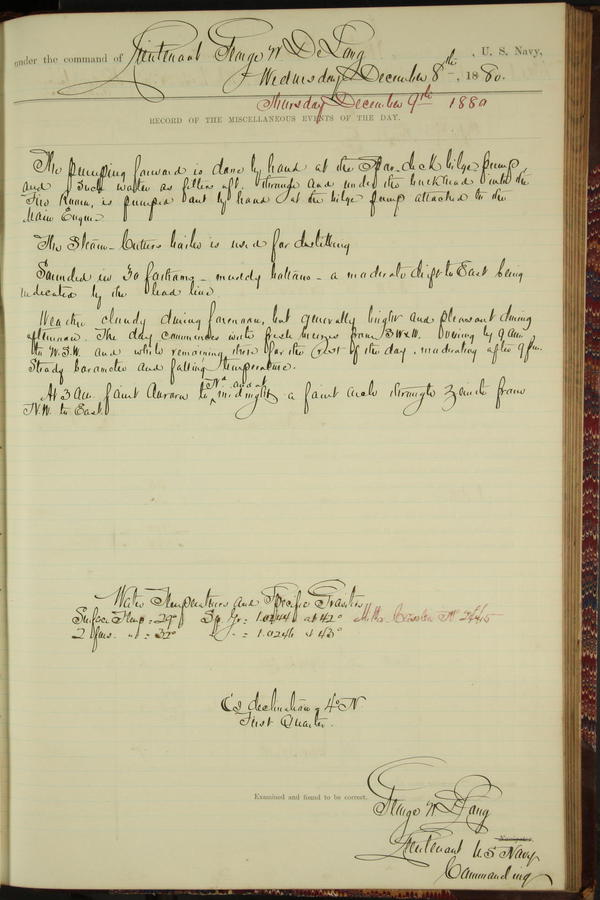 under the command of Lieutenant George W. De Long, U. S. Navy,
Wednesday December 8th, 1880.
Thursday December 9th 1880
RECORD OF THE MISCELLANEOUS EVENTS OF THE DAY.
The pumping forward is done by hand at the Spar deck bilge pump,
and such water as filters aft through and under the bulkhead into the
Fire Room, is pumped out by hand at the bilge pump attached to the
Main Engine.
The Steam-Cutters boiler is used for distilling
Sounded in 30 fathoms - muddy bottom - a moderate drift to East being
indicated by the lead line.
Weather cloudy during forenoon, but generally bright and pleasant during
afternoon. The day commences with fresh breezes from SW x W. veering by 9 am
to W.S.W. and while remaining there for the rest of the day, moderating after 9 pm.
Steady barometer and falling temperature.
At 3 am. faint Aurora to Nd and at midnight a faint arch through zenith from
N.W. to East.
Water Temperatures and Specific Gravities
Surface Temp = 29° Sp. Gr = 1.0244 at 42° Hydr. No
2 fms. " = 1.0246 at 43°
declination 4° N
First Quarter.
Examined and found to be correct.
George W. De Long
Navigator.
Lieutenant U.S. Navy
Commanding